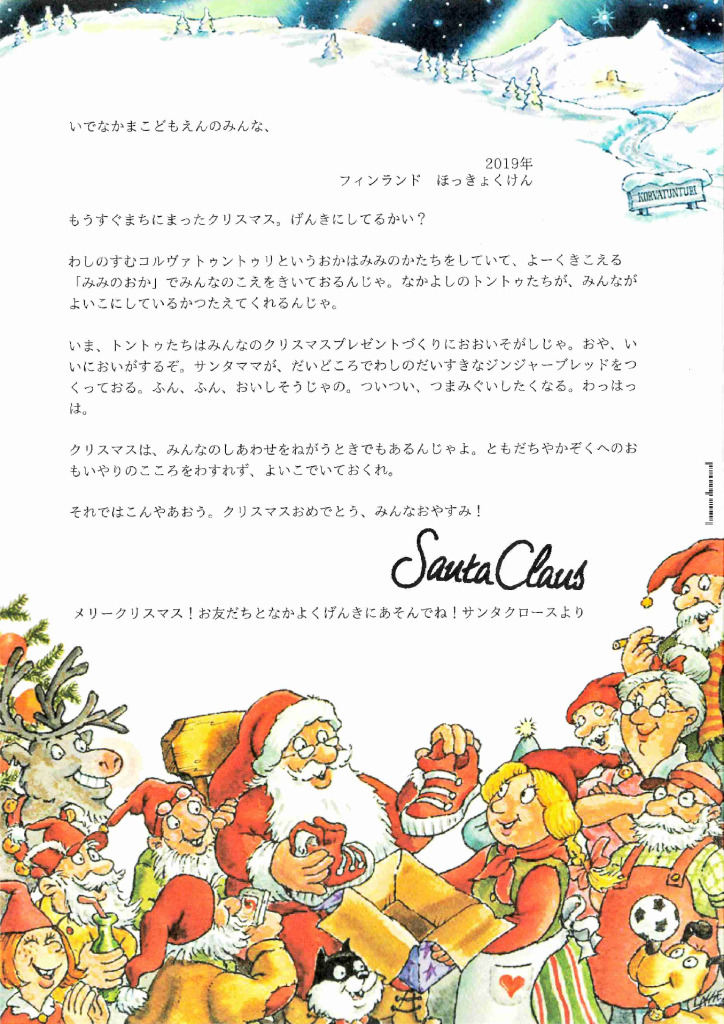 KORVATUNTURI
いでなかまこどもえんのみんな、
2019年
フィンランド　ほっきょくけん
もうすぐまちにまったクリスマス。げんきにしてるかい？
わしのすむコルヴァトゥントゥリというおかはみみのかたちをしていて、よーくきこえる
「みみのおか」でみんなのこえをきいておるんじゃ。なかよしのトントゥたちが、みんなが
よいこにしているかつたえてくれるんじゃ。
いま、トントゥたちはみんなのクリスマスプレゼントづくりにおおいそがしじゃ。おや、い
いにおいがするぞ。サンタママが、だいどころでわしのだいすきなジンジャーブレッドをつ
くっておる。ふん、ふん、おいしそうじゃの。ついつい、つまみぐいしたくなる。わっはっ
は。
クリスマスは、みんなのしあわせをねがうときでもあるんじゃよ。ともだちやかぞくへのお
もいやりのこころをわすれず、よいこでいておくれ。
それではこんやあおう。クリスマスおめでとう、みんなおやすみ！
Santa Claus
メリークリスマス！お友だちとなかよくげんきにあそんでね！サンタクロースより